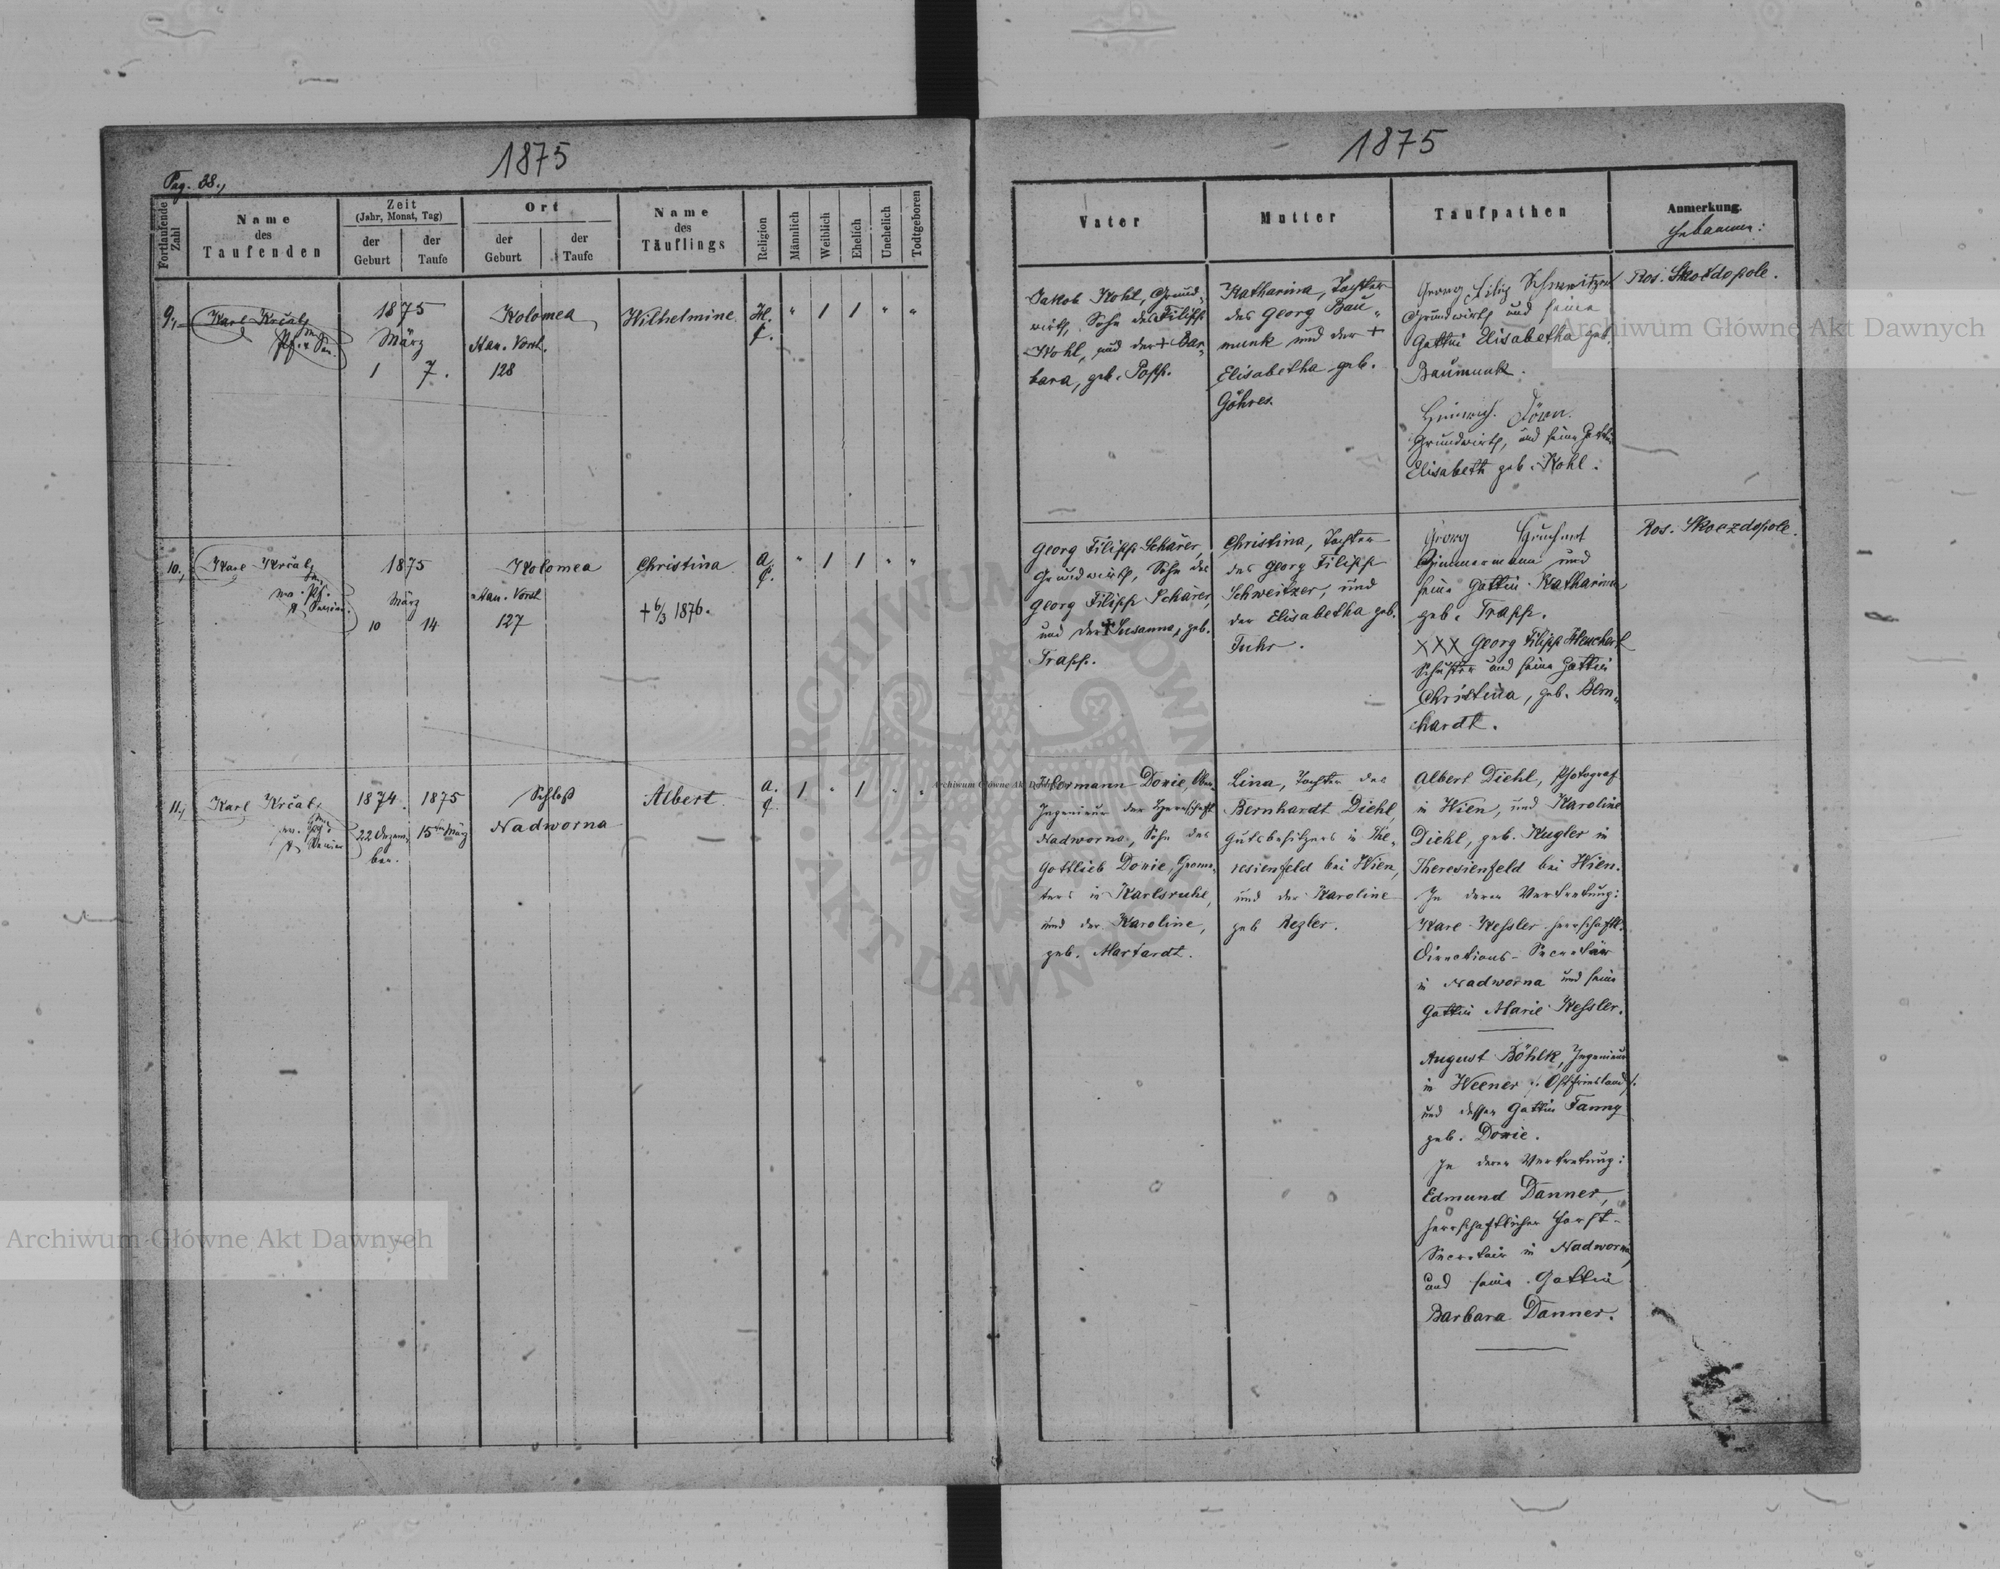 1875
1875
Pag. 38.,
Fortlaufende Zahl
Name
des
Taufenden
Zeit
(Jahr, Monat, Tag)
der
Geburt
der
Taufe
Ort
der
Geburt
der
Taufe
Name
des
Täuflings
Religion
Männlich
Weiblich
Ehelich
Unehelich
Todtgeboren
Vater
Mutter
Taufpathen
Anmerkung.
Hebamme:
9.,
Karl Krčal,
1875
März
1 7.
Kolomea
Nan. Vorst.
128
Wilhelmine
H.
C.
" 1 1 " "
Jakob Kohl, Grund-
wirth, Sohn des Filipp
Kohl, und der + Bar-
bara, geb. Popp.
Katharina, Tochter
des Georg Bau-
munk und der +
Elisabetha geb.
Göhres.
Georg Filip Schweitzer
Grundwirth und seine
Gattin Elisabetha geb.
Baumunk.
Heinrich
Grundwirth, und seine Gattin
Elisabeth geb. Kohl.
Ros. Skoezdopole.
10.,
Karl Krčal,
1875
März
10 14
Kolomea
Nan. Vorst.
127
Christina
+ 6/3 1876.
A.
C.
" 1 1 " "
Georg Filipp Schärer,
Grundwirth, Sohn des
Georg Filipp Schärer,
und der + Susanna, geb.
Trapp.
Christina, Tochter
des Georg Filipp
Schweitzer, und
der Elisabetha geb.
Fuhr.
Georg
Zimmermann und
seine Gattin Katharina
geb. Trapp.
XXX Georg Filipp Heuchert
Schuster und seine Gattin
Christina, geb. Bern-
hardt.
Ros. Skoezdopole.
11.,
Karl Krčal,
1874. 1875
22 Dezem- 15ten März
ber.
Schloß
Nadworna
Albert
A.
C.
1 " 1 " "
Hermann Dorie, Ober-
Ingenieur der Herrschaft
Nadworna, Sohn des
Gottlieb Dorie, Geome-
ters in Karlsruhe,
und der Karoline,
geb. Martardt.
Lina, Tochter des
Bernhardt Diehl,
Gutsbesitzers in The-
resienfeld bei Wien,
und der Karoline
geb. Kegler.
Albert Diehl, Photograf
in Wien, und Karoline
Diehl, geb. Kugler in
Theresienfeld bei Wien.
In deren Vertretung:
Karl Kessler herrschaftl.
Directions-Secretär
in Nadworna und seine
Gattin Marie Kessler.
August Böhlk, Ingenieur
in Weener /: Ostfriesland :/
und dessen Gattin Fanny
geb. Dorie.
In deren Vertretung:
Edmund Danner,
herrschaftlicher Forst-
Secretair in Nadworna,
und seine Gattin
Barbara Danner.
Archiwum Główne Akt Dawnych
Archiwum Główne Akt Dawnych
ARCHIWUM GŁÓWNE AKT DAWNYCH